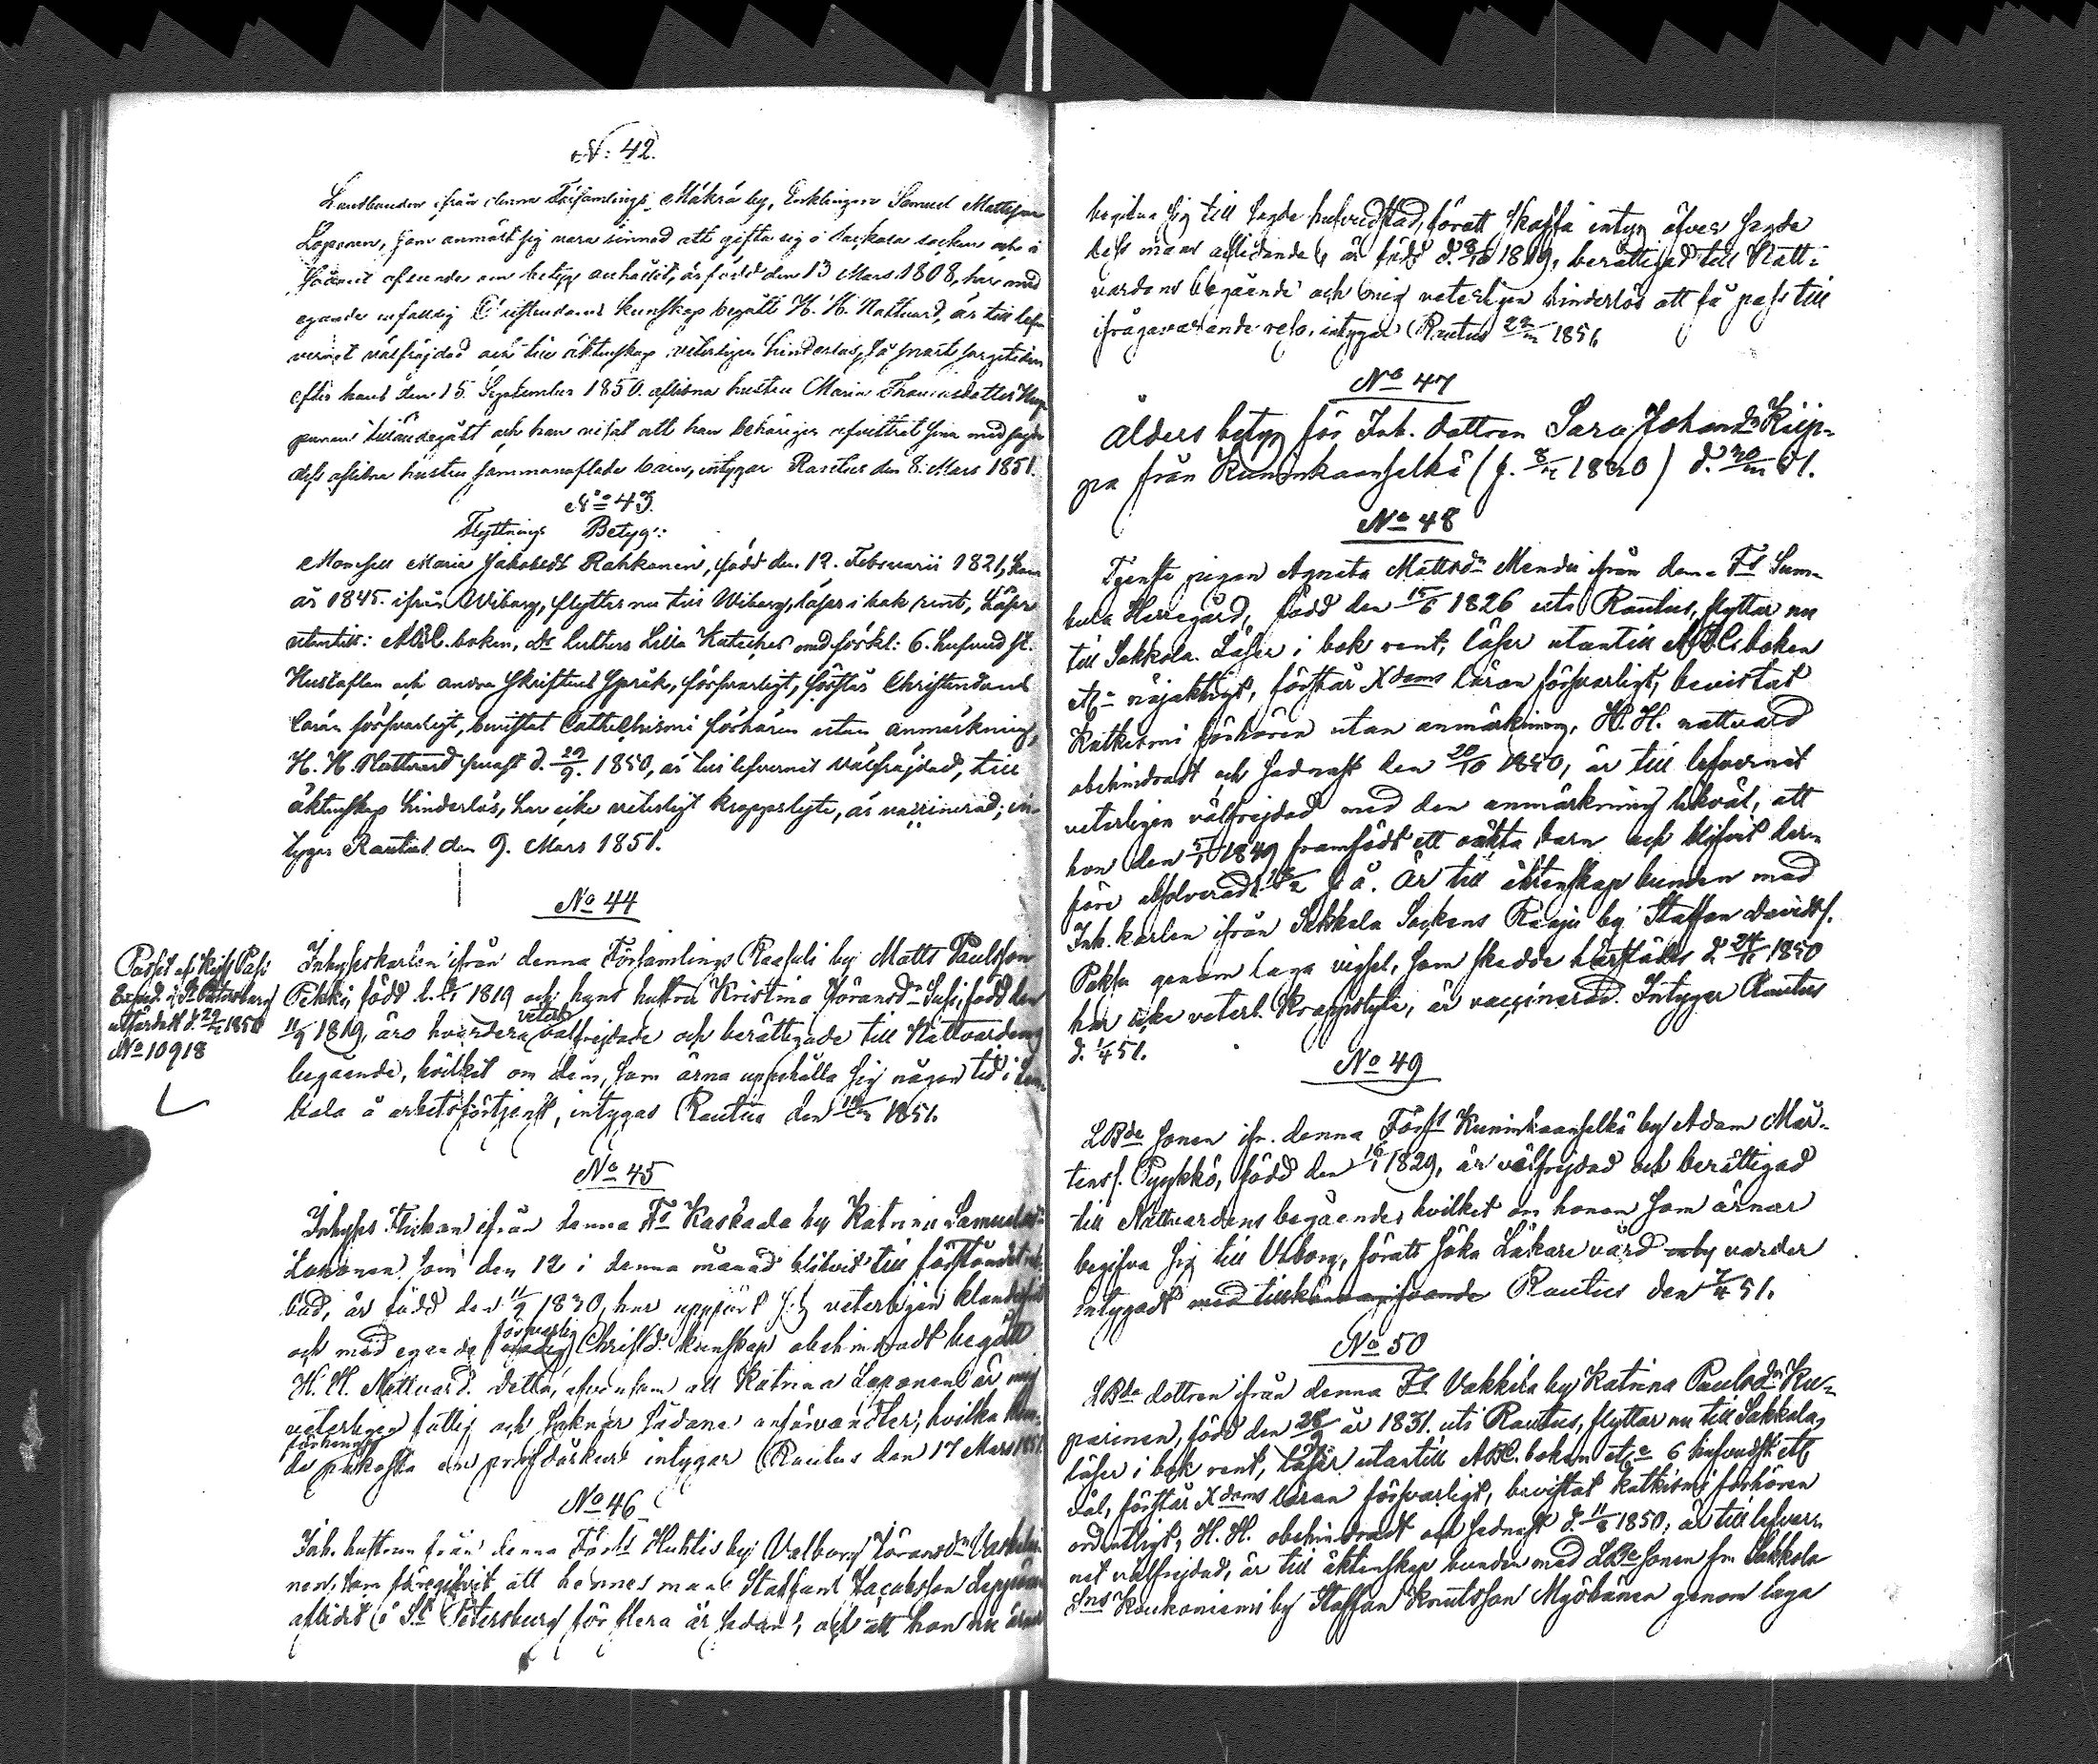 N: 42.
Landbonden ifrån denna Församlings Mäkrä by, Enklingen Samuel Mattsson
Loponen, som anmält sig vara sinnad att gifta sig i Sackola socken och i
sådant afseende om betyg anhållit, är född den 13 Mars 1808, har med
egande enfaldig Christendoms kunskap begått H. H. Nattvard, är till lef-
vernet välfräjdad och till äktenskap veterligen hinderlös, så snart sorgetiden
efter hans den 15 September 1850 aflidna hustru Maria Thomasdotter
tilländagått och han visat att han behörigen afvittrat sina med sagde
dess aflidna hustru sammanaflade barn, intygar Rautus den 8. Mars 1851.
No 43.
Flyttnings Betyg:
Mamsell Maria Jakobsdr Rahkonen, född den 12. Februarii 1821, kom
år 1845. ifrån Wiborg, flyttar nu till Wiborg, läser i bok rent, läser
utantill: ABC.boken, Dr Luthers Lilla Kateches med förkl: 6. hufvud st.
Hustaflan och andra skriftens språk, försvarligt, förstår Christendoms
läran försvarligt, bevistat Cathechismi förhören utan anmärkning,
H. H. Nattvard senast d. 29/9. 1850, är till lefvernet välfräjdad, till
äktenskap hinderlös, har icke veterligt kroppslyte, är vaccinerad; in-
tygar Rautus den 9. Mars 1851.
No 44
Passet af Exped. i St Petersburg
utfärdadt d. 29/ 1850
No 10918
Inhyseskarlen ifrån denna Församlings Raasuli by Matts Paulsson
Pekki, född d. 1819 och hans hustru Kristina Göransdr Susi, född den
11/9 1819, äro hvardera veterl. välfrejdade och berättigade till Nattvardens
begående, hvilket om dem, som ärna uppehålla sig någon tid i
å arbetsförtjenst, intygas Rautus den 1851.
No 45
Inhyses Flickan ifrån denna Fs Kaskala by Katrina Samuelsdr
Loponen som den 12 i denna månad blifvit till
är född den 11/9 1830, har uppfört sig veterligen
och med egande försvarlig Christd. kunskap obehindradt begått
H. H. Nattvard. Detta, äfvensom att Katrina Loponen är mig
veterligen fattig och saknar sådana anförvandter, hvilka
de påkosta intygar Rautus den 17 Mars 1851.
No 46
Inh. hustrun från denna Förs:s Huhtis by Valborg Göransdr
nen, som föregifvit, att hennes man Staffan Jacobsson
aflidit i St Petersburg för flera år sedan, och att hon nu ärnar
begifva sig till sagde hufvudstad, föratt skaffa intyg öfver sagde
dess mans aflidande, är född d. 1819, berättigad till Natt-
vardens begående och mig veterligen hinderlös att få pass till
ifrågavarande resa, intygar Rautus 22/ 1851
No 47
Ålders betyg för Inh. dottren Sara Johansdr Kiip-
pa från Kuninkaanselkä (f. 1830) d. 30/ 51.
No 48
Tjenste pigan Agneta Mattsdr Mendu ifrån denna Fs Sum-
bula Herregård, född den 15/6 1826 uti Rautus, flyttar nu
till Sakkola. Läser i bok rent, läser utantill ABC boken
etc nöjaktigt, förstår Xdoms läran försvarligt, bevistat
Katkesmi förhören utan anmärkning, H. H. nattvard
obehindradt och sednast den 20/10 1850, är till lefvernet
veterligen välfrejdad med den anmärkning likväl, att
hon den 1849 framfödt ett oäkta barn och blifvit der-
före absolverad s. å. Är till äktenskap bunden med
Inh. karlen ifrån Sakkola Sockens by Staffan Davidss.
genom laga vigsel, som skedde härstädes d. 1850
har icke veterl. kroppslyte, är vaccinerad. Intygar Rautus
d. 1/4 51.
No 49
LBde sonen ifr. denna Förs:s Kuninkaanselkä by Adam Mår-
tenss. Pyykkö, född den 16/1 1829, är välfrejdad och berättigad
till Nattvardens begående, hvilket om honom som ärnar
begifva sig till Viborg, föratt söka Läkare vård varder
intygadt Rautus den 7/4 51.
No 50
LBde dottren ifrån denna Fs Vakkila by Katrina Paulsdr Ku-
parinen, född den 28/9 år 1831. uti Rautus, flyttar nu till Sakkola,
läser i bok rent, läser utantill ABC. boken etc 6 hufvudst. etc
väl, förstår Xdoms läran försvarligt, bevistat katkismi förhören
ordentligt, H. H. obehindradt och sednast d. 1850, är till lefver-
net välfrejdad, är till äktenskap bunden med LBde sonen frn Sakkola
Sns Koukoniemi by Staffan Knutsson Myöhänen genom laga